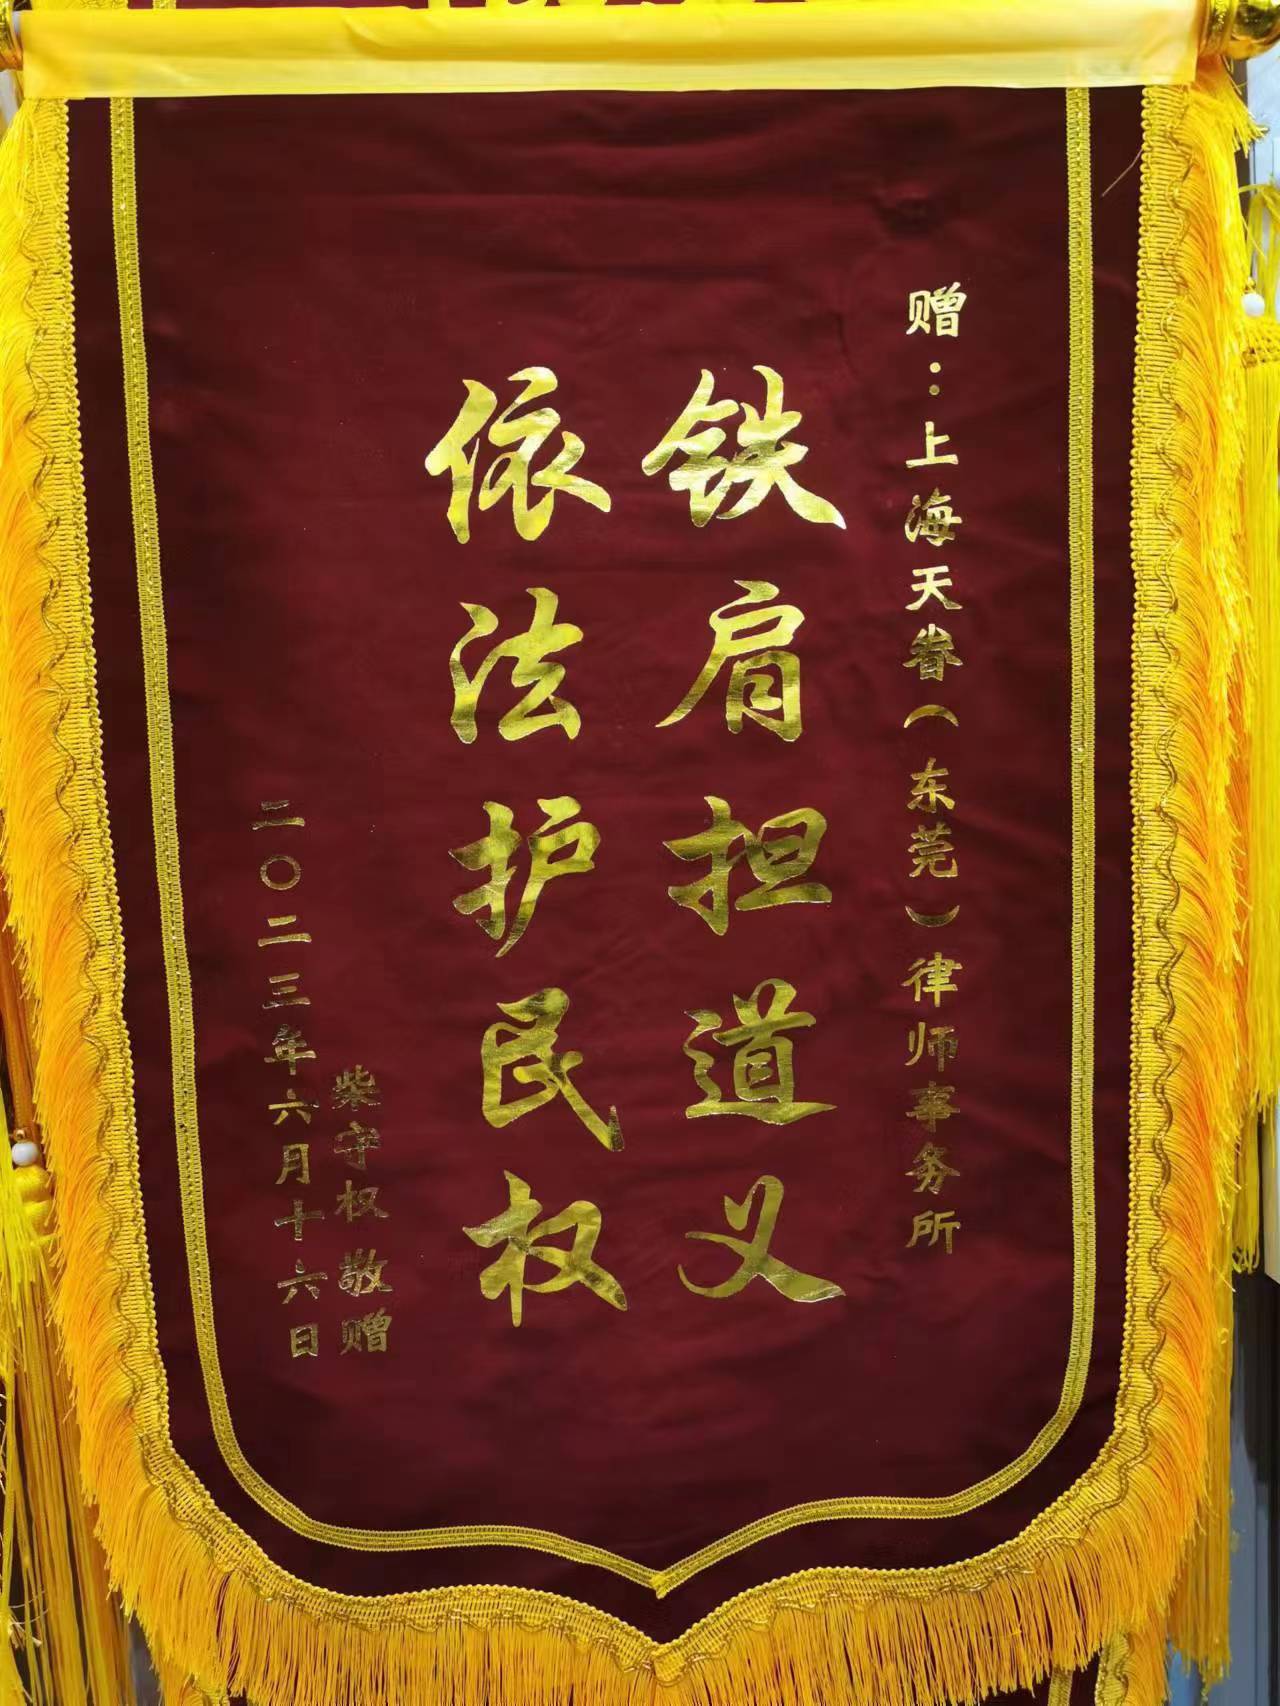 赠：上海天眷（东莞）律师事务所
铁肩担道义
依法护民权
柴守权 敬赠
二〇二三年六月十六日